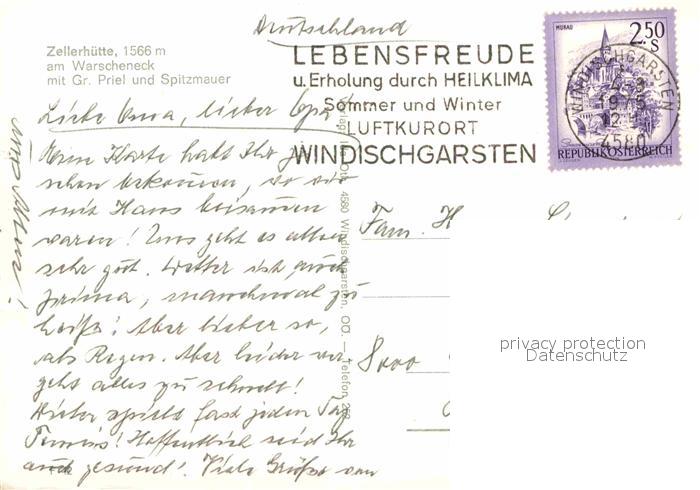 Deutschland
Zellerhütte, 1566 m
am Warscheneck
mit Gr. Priel und Spitzmauer
LEBENSFREUDE
u. Erholung durch HEILKLIMA
Sommer und Winter
LUFTKURORT
WINDISCHGARSTEN
MURAU
2.50
S
REPUBLIK ÖSTERREICH
WINDISCHGARSTEN
4580
Liebe Oma, lieber Opa!
Karte habt Ihr ja
schon bekommen, wo wir
mit Hans beisammen
waren! Uns geht es allen
sehr gut. Wetter ist auch
prima, manchmal zu
heiß! Aber lieber so,
als Regen. Aber leider ver-
geht alles zu schnell!
Dieter spielt fast jeden Tag
Tennis! Hoffentlich seid Ihr
auch gesund! Viele Grüße von
4580 Windischgarsten, OÖ. — Telefon
Fam. H
8000
privacy protection
Datenschutz